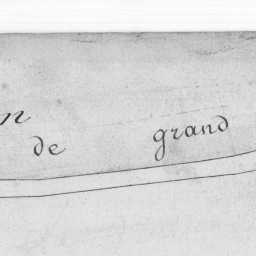 n
de grand